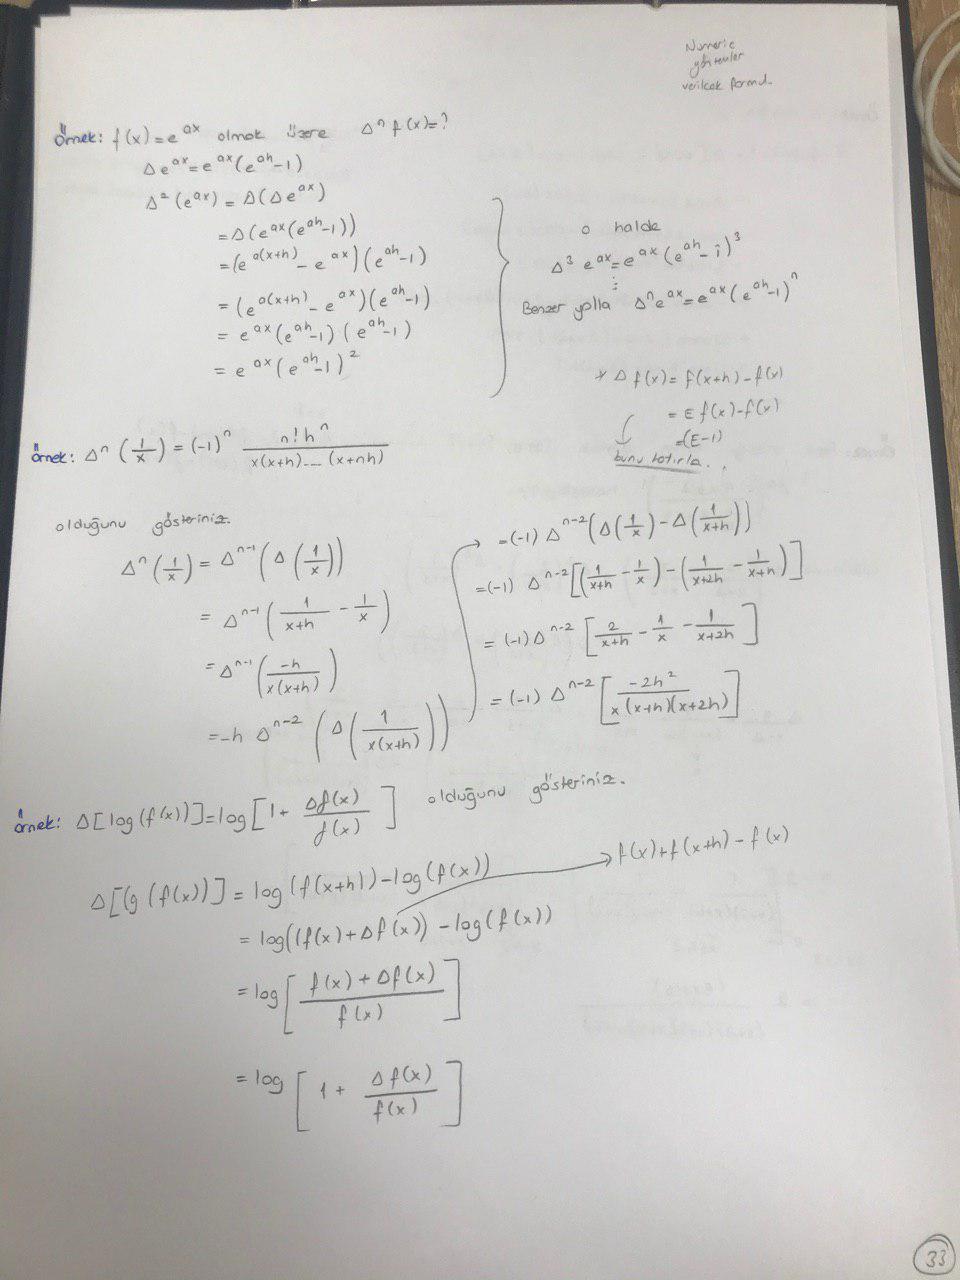 Numeric
yöntemler
verilcek formul.
Örnek: f(x)=e^{ax} olmak üzere Δ^n f(x)=?
Δe^{ax}=e^{ax}(e^{ah}-1)
Δ^2(e^{ax})=Δ(Δe^{ax})
=Δ(e^{ax}(e^{ah}-1))
=(e^{a(x+h)}-e^{ax})(e^{ah}-1)
=(e^{a(x+h)}-e^{ax})(e^{ah}-1)
=e^{ax}(e^{ah}-1)(e^{ah}-1)
=e^{ax}(e^{ah}-1)^2
O halde
Δ^3 e^{ax}=e^{ax}(e^{ah}-1)^3
⋮
Benzer yolla Δ^n e^{ax}=e^{ax}(e^{ah}-1)^n
* Δf(x)=f(x+h)-f(x)
=E f(x)-f(x)
=(E-1)
bunu hatırla...
Örnek: Δ^n(1/x)=(-1)^n n!h^n/x(x+h)...(x+nh)
olduğunu gösteriniz.
Δ^n(1/x)=Δ^{n-1}(Δ(1/x))
=Δ^{n-1}(1/x+h - 1/x)
=Δ^{n-1}(-h/x(x+h))
=-h Δ^{n-2}(Δ(1/x(x+h)))
→ =(-1) Δ^{n-2}(Δ(1/x)-Δ(1/x+h))
=(-1) Δ^{n-2}[(1/x+h - 1/x)-(1/x+2h - 1/x+h)]
=(-1)Δ^{n-2}[2/x+h - 1/x - 1/x+2h]
=(-1) Δ^{n-2}[-2h^2/x(x+h)(x+2h)]
Örnek: Δ[log(f(x))]=log[1+ Δf(x)/f(x)] olduğunu gösteriniz.
Δ[(g(f(x))]=log(f(x+h))-log(f(x)) → f(x)+f(x+h)-f(x)
=log((f(x)+Δf(x))-log(f(x))
=log[f(x)+Δf(x)/f(x)]
=log[1+ Δf(x)/f(x)]
33